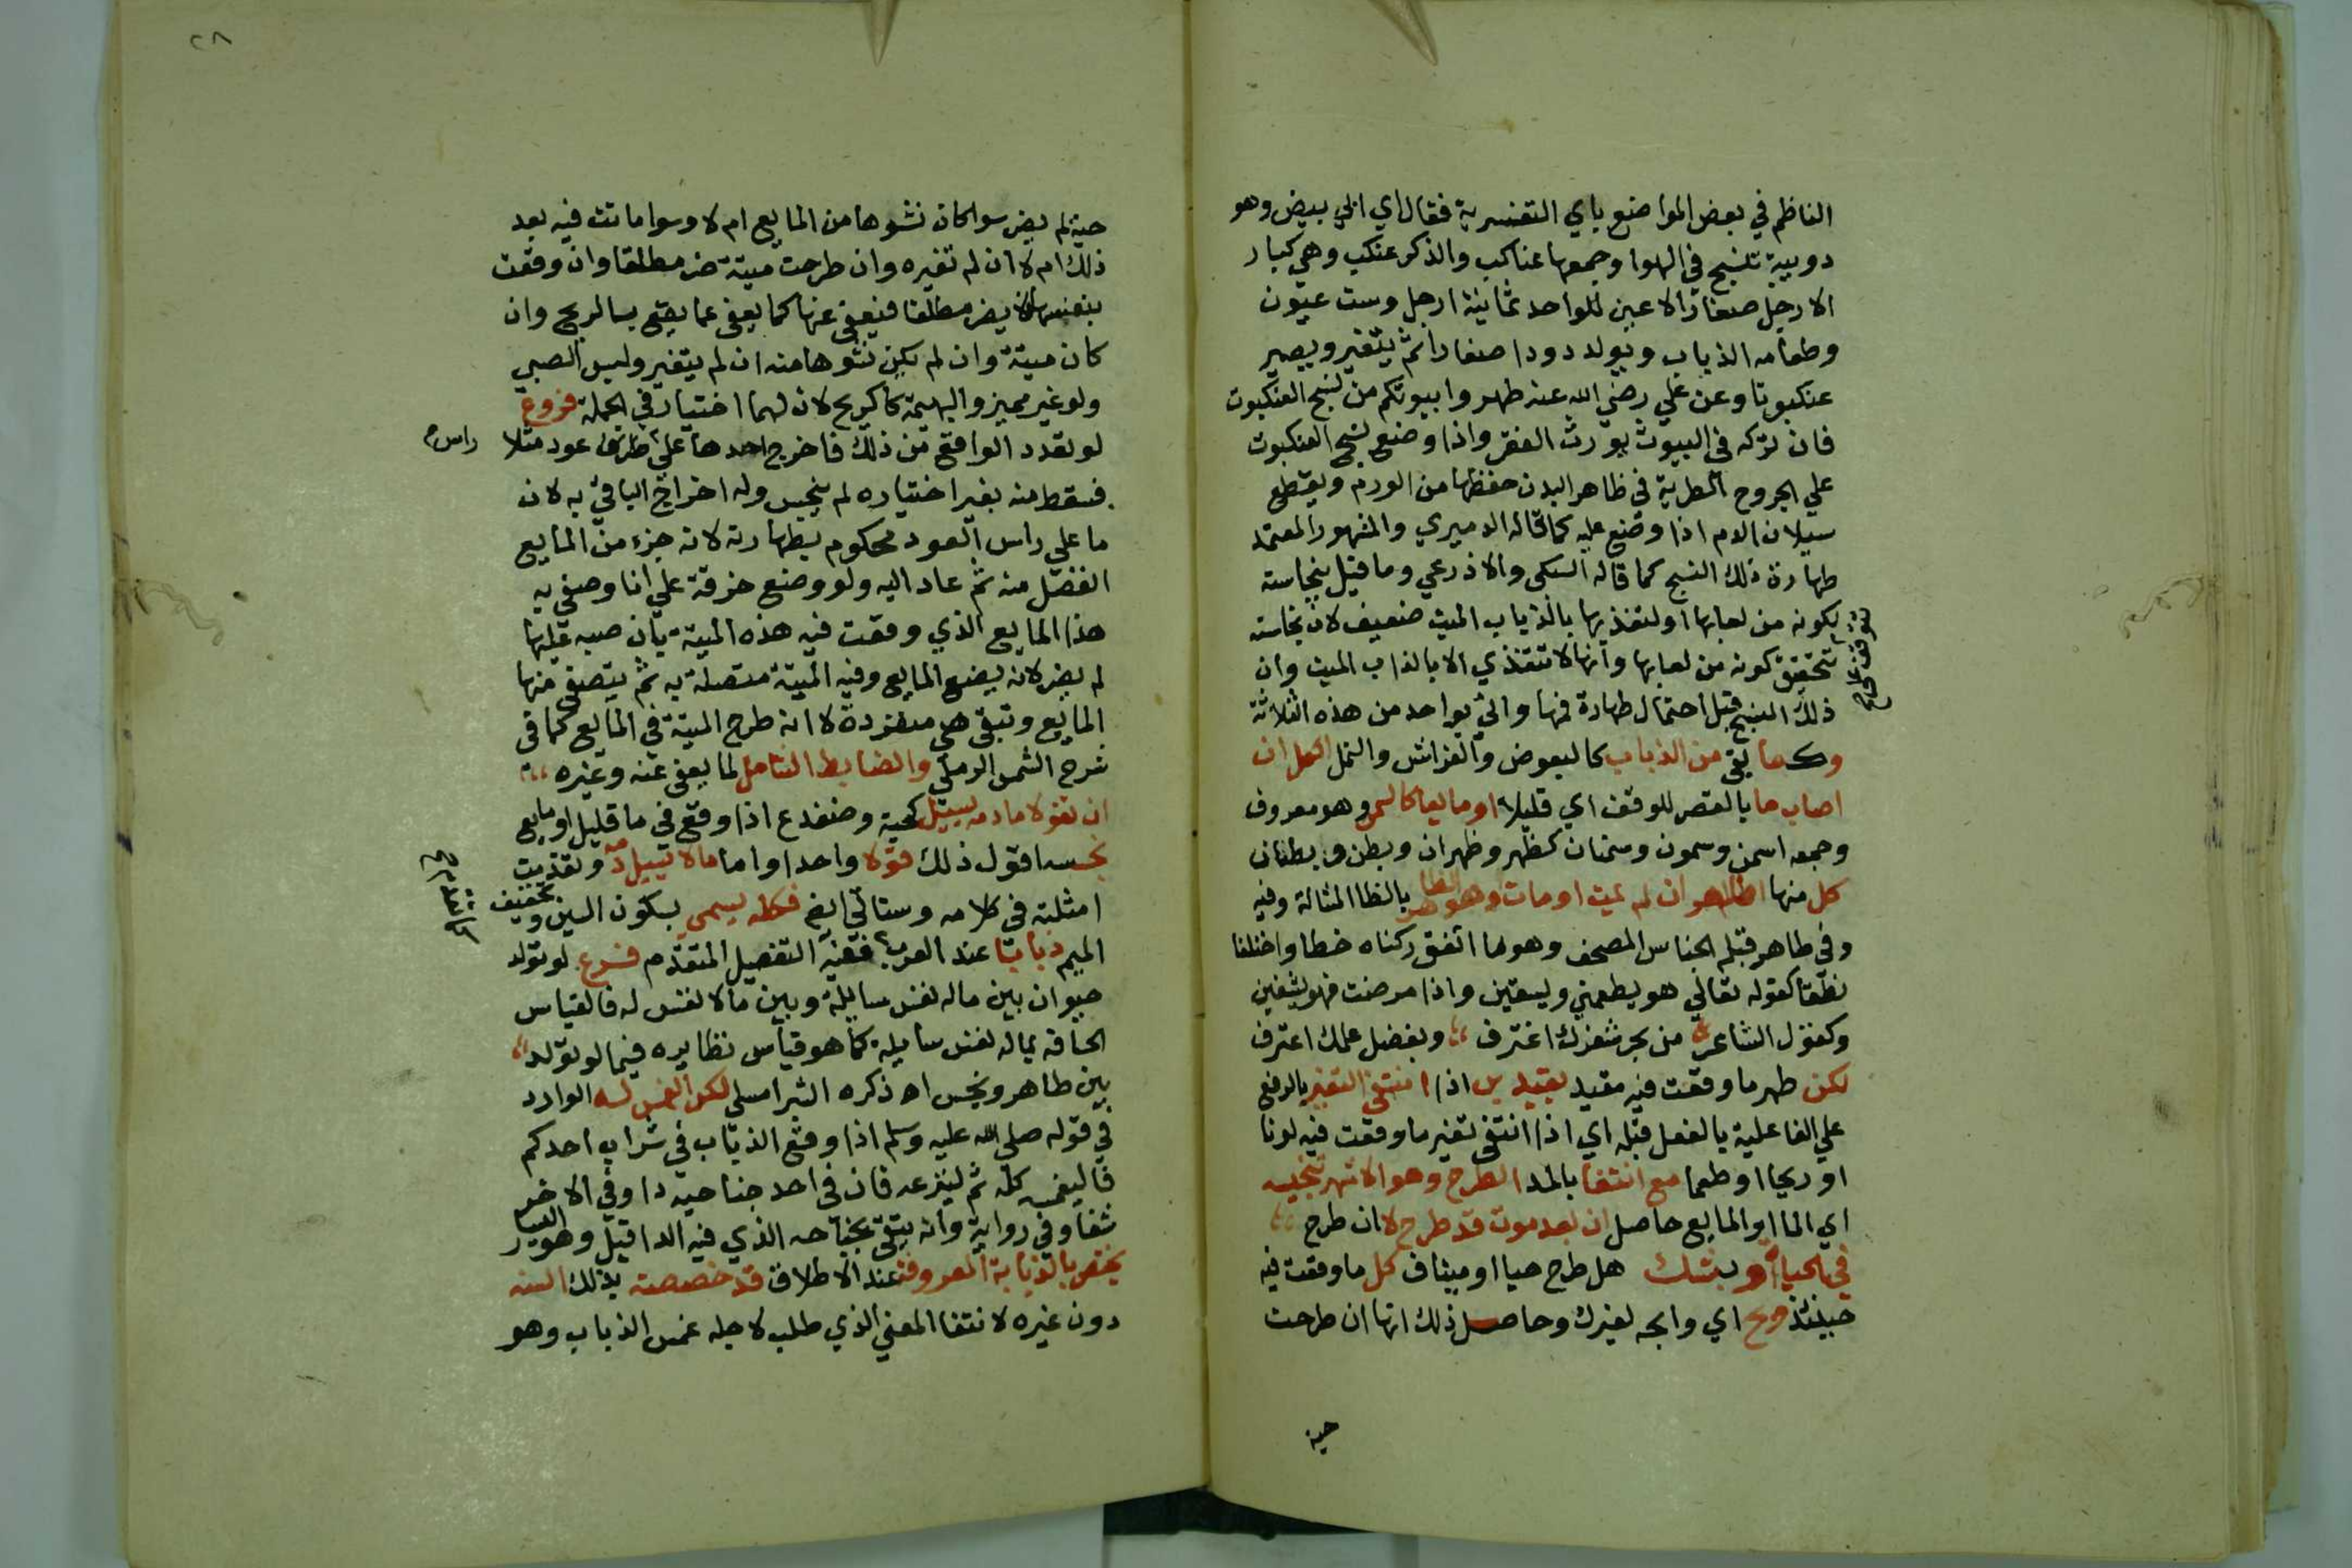 الناظم في بعض المواضع باي التفسيرية فقال اي ابي بيض وهو
دويبة تنسج في الهوا وجمعها عناكب والذكر عنكب وهي كبار
الارجل صغار الاعين للواحد ثمانية ارجل وست عيون
وطعامه الذباب ويولد دودا صغارا ثم يتغير ويصير
عنكبوتا وعن علي رضي الله عنه طهروا بيوتكم من نسج العنكبوت
فان تركه في البيوت يورث الفقر واذا وضع نسج العنكبوت
علي الجروح الطرية في ظاهر البدن حفظها من الورم ويقطع
سيلان الدم اذا وضع عليه كما قاله الدميري والمشهور المعتمد
طهارة ذلك النسج كما قاله السبكي والاذرعي وما قيل بنجاسته
لكونه من لعابها او لتغذيها بالذباب الميت ضعيف لان نجاسته
تتوقف علي
تحقق كونه من لعابها وانها لا تتغذي الا بالذباب الميت وان
ذلك النسج قبل احتمال طهارة فمها واني بواحد من هذه الثلاثة
وكما بقى من الذباب كالبعوض والفراش والنمل النحل ان
اصاب ما بالقصر للوقف اي قليلا او مايعا كالسمن وهو معروف
وجمعه اسمن وسمون وسمنان كظهر وظهران وبطن وبطنان
كل منها اطاهر ان لم يمت او مات وهو بالظا المثالة وفيه
وفي طاهر قبله الجناس المصحف وهو ما اتفق ركناه خطا واختلفا
نطقا كقوله تعالي هو يطعمني ويسقين واذا مرضت فهو يشفين
وكقول الشاعر من بحر شعرك اغترف وبفضل علمك اعترف
لكن طهر ما وقعت فيه مقيد بقيدين اذا انتفى التغير بالرفع
علي الفاعلية بالفعل قبله اي اذا انتفى تغير ما وقعت فيه لونا
او ريحا او طعما مع انتفا بالمد الطرح وهو الاشهر تنجيسه
اي الما او المايع حاصل ان بعد موت قد طرح لا ان طرح
في الحياة او بشك هل طرح حيا او ميتا ف كل ما وقعت فيه
حينئذ وبح اي وابحه لغيرك وحاصل ذلك انها ان طرحت
حية
٢٨
حية لم يضر سوا كان نشوها من المايع ام لا وسوا ماتت فيه بعد
ذلك ام لا ان لم تغيره وان طرحت ميتة ضر مطلقا وان وقعت
بنفسها لا يضر مطلقا فيعفى عنها كما يعفى عما يقع بالريح وان
كان ميتة وان لم يكن نشوها منه ان لم يتغير وليس الصبي
ولو غير مميز والبهيمة كالريح لان لهما اختيارا في الجملة فروع
لو تعدد الواقع من ذلك فاخرج احدها علي طرف عود مثلا
راس
فسقط منه بغير اختياره لم ينجس وله اخراج الباقي به لان
ما علي راس العود محكوم بطهارته لانه جزء من المايع
انفصل منه ثم عاد اليه ولو وضع خرقة علي انا وصفى به
هذا المايع الذي وقعت فيه هذه الميتة بان صبه عليها
لم يضر لانه يضع المايع وفيه الميتة متصلة به ثم يتصفى منها
المايع وتبقى هي منفردة لا انه طرح الميتة في المايع كما في
شرح الشمس الرملي والضابط الشامل لما يعفى عنه وغيره
ان تقولا ما دمه يسيل كحية وضفدع اذا وقع في ما قليل او مايع
نجسه اقول ذلك قولا واحدا واما ما لا يسيل دمه وتقدمت
امثلته في كلامه وستاتي ايضا فكله يسمى بسكون السين وتخفيف
الميم ذبابا عند العرب ففيه التفصيل المتقدم فرع لو تولد
حيوان بين ما له نفس سايلة وبين ما لا نفس له فالقياس
الحاقه بما له نفس سايلة كما هو قياس نظايره فيما لو تولد
بين طاهر ونجس اه ذكره الشبراملسي لكن الغمس له الوارد
في قوله صلى الله عليه وسلم اذا وقع الذباب في شراب احدكم
فاليغمسه كله ثم لينزعه فان في احد جناحيه دا وفي الاخر
شفا وفي رواية وانه يتقي بجناحه الذي فيه الدا قيل وهو اليسار
يختص بالذبابة المعروفة عند الاطلاق قد خصصته بذلك السنه
دون غيره لانتفا المعني الذي طلب لاجله غمس الذباب وهو